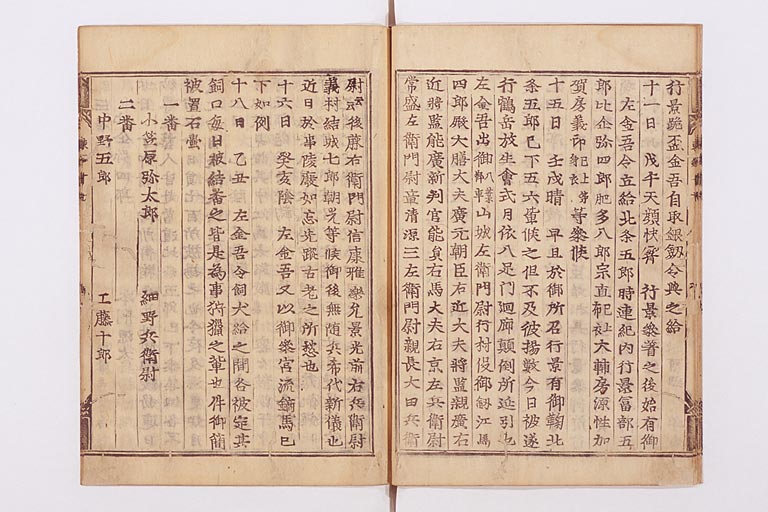 行景跪盃金吾自取銀劔令與之給
十一日　戊午天顔快霽　行景參着之後始有御
左金吾令立給北条五郎時連紀内行景冨部五
郎比企弥四郎肥多八郎宗直
賀房義印等參候
十五日　壬戌晴　早旦於御所召行景有御鞠北
条五郎已下五六輩候之但不及彼揚數今日被遂
行鶴岳放生會式月依八足門廻廊顛倒所延引也
左金吾出御山城左衛門尉行村役御劔江馬
四郎殿大膳大夫廣元朝臣右近大夫將監親廣右
近將監能廣新判官能員右馬大夫右京左兵衛尉
常盛左衛門尉童清源三左衛門尉親長大田兵衛
尉後藤右衛門尉信康雅樂允景光前右兵衛尉
義村結城七郎朝光等候御後無随兵希代新儀也
近日於事陵廢如忘先蹤古老之所愁也
十六日　癸亥陰　左金吾又以御參宮流鏑馬已
下如例
十八日　乙丑　左金吾令飼犬給之間各被定其
飼口毎日被結番之皆是為事狩獵之輩也件御簡
被置石壷
一番
小笠原弥太郎　細野兵衛尉
二番
中野五郎　工藤十郎